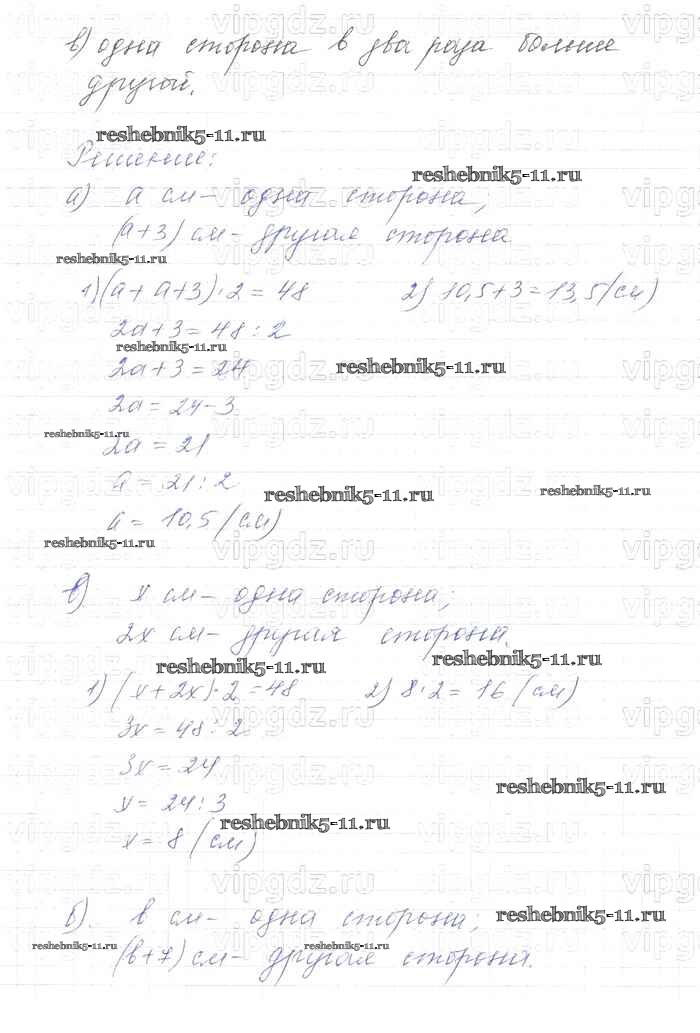 в) одна сторона в два раза больше
другой.
reshebnik5-11.ru
Решение:
reshebnik5-11.ru
а) а см – одна сторона;
(а+3) см – другая сторона
reshebnik5-11.ru
1) (а + а+3)·2 = 48 2) 10,5+3=13,5 (см)
2а+3=48:2
reshebnik5-11.ru
2а+3=24
reshebnik5-11.ru
2а=24-3
reshebnik5-11.ru
2а=21
а=21:2
reshebnik5-11.ru reshebnik5-11.ru
а=10,5 (см)
reshebnik5-11.ru
в) х см – одна сторона;
2х см – другая сторона.
reshebnik5-11.ru reshebnik5-11.ru
1) (х+2х)·2=48 2) 8·2=16 (см)
3х=48:2
3х=24
reshebnik5-11.ru
х=24:3
reshebnik5-11.ru
х=8 (см)
б). в см – одна сторона; reshebnik5-11.ru
reshebnik5-11.ru reshebnik5-11.ru
(в+7) см – другая сторона.
vipgdz.ru